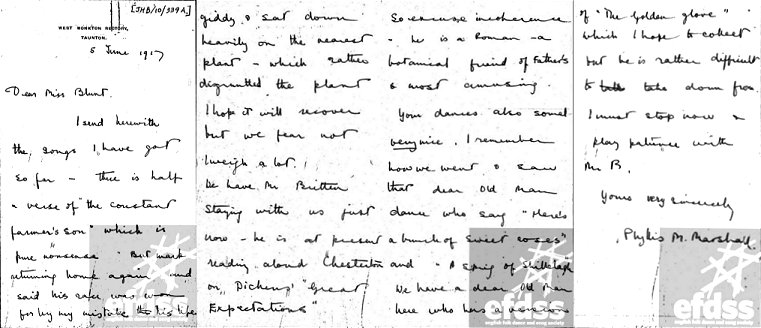 [JHB/10/339A]
WEST MONKTON RECTORY,
TAUNTON.
5 June 1917
Dear Miss Blunt.
I send herewith
the songs I have got
so far – there is half
a verse of "the constant
farmer's son" which is
pure "nonsense" But mark
returning home again and
said his was won
for by my mistake his life
giddy & sat down
heavily on the nearest
plant – which rather
disgruntled the plant
I hope it will recover
but we fear not
I weigh a lot.
We have Mr Britten
staying with us just
now – he is at present
reading aloud Chesterton
on, Dickens' "Great
Expectations"
So excuse incoherence
– he is a Roman – a
botanical friend of Father's
& most amusing.
Your dances also sound
very nice. I remember
how we went & saw
that dear old man
dance who say "Here's
a bunch of sweet roses"
and "A sprig of
We have a dear old man
here who has a version
of "The Golden glove"
which I hope to collect
but he is rather difficult
to take down from.
I must stop now &
play patience with
Mr B.
Yours very sincerely
Phyllis M. Marshall.
efdss
english folk dance and song society
efdss
english folk dance and song society